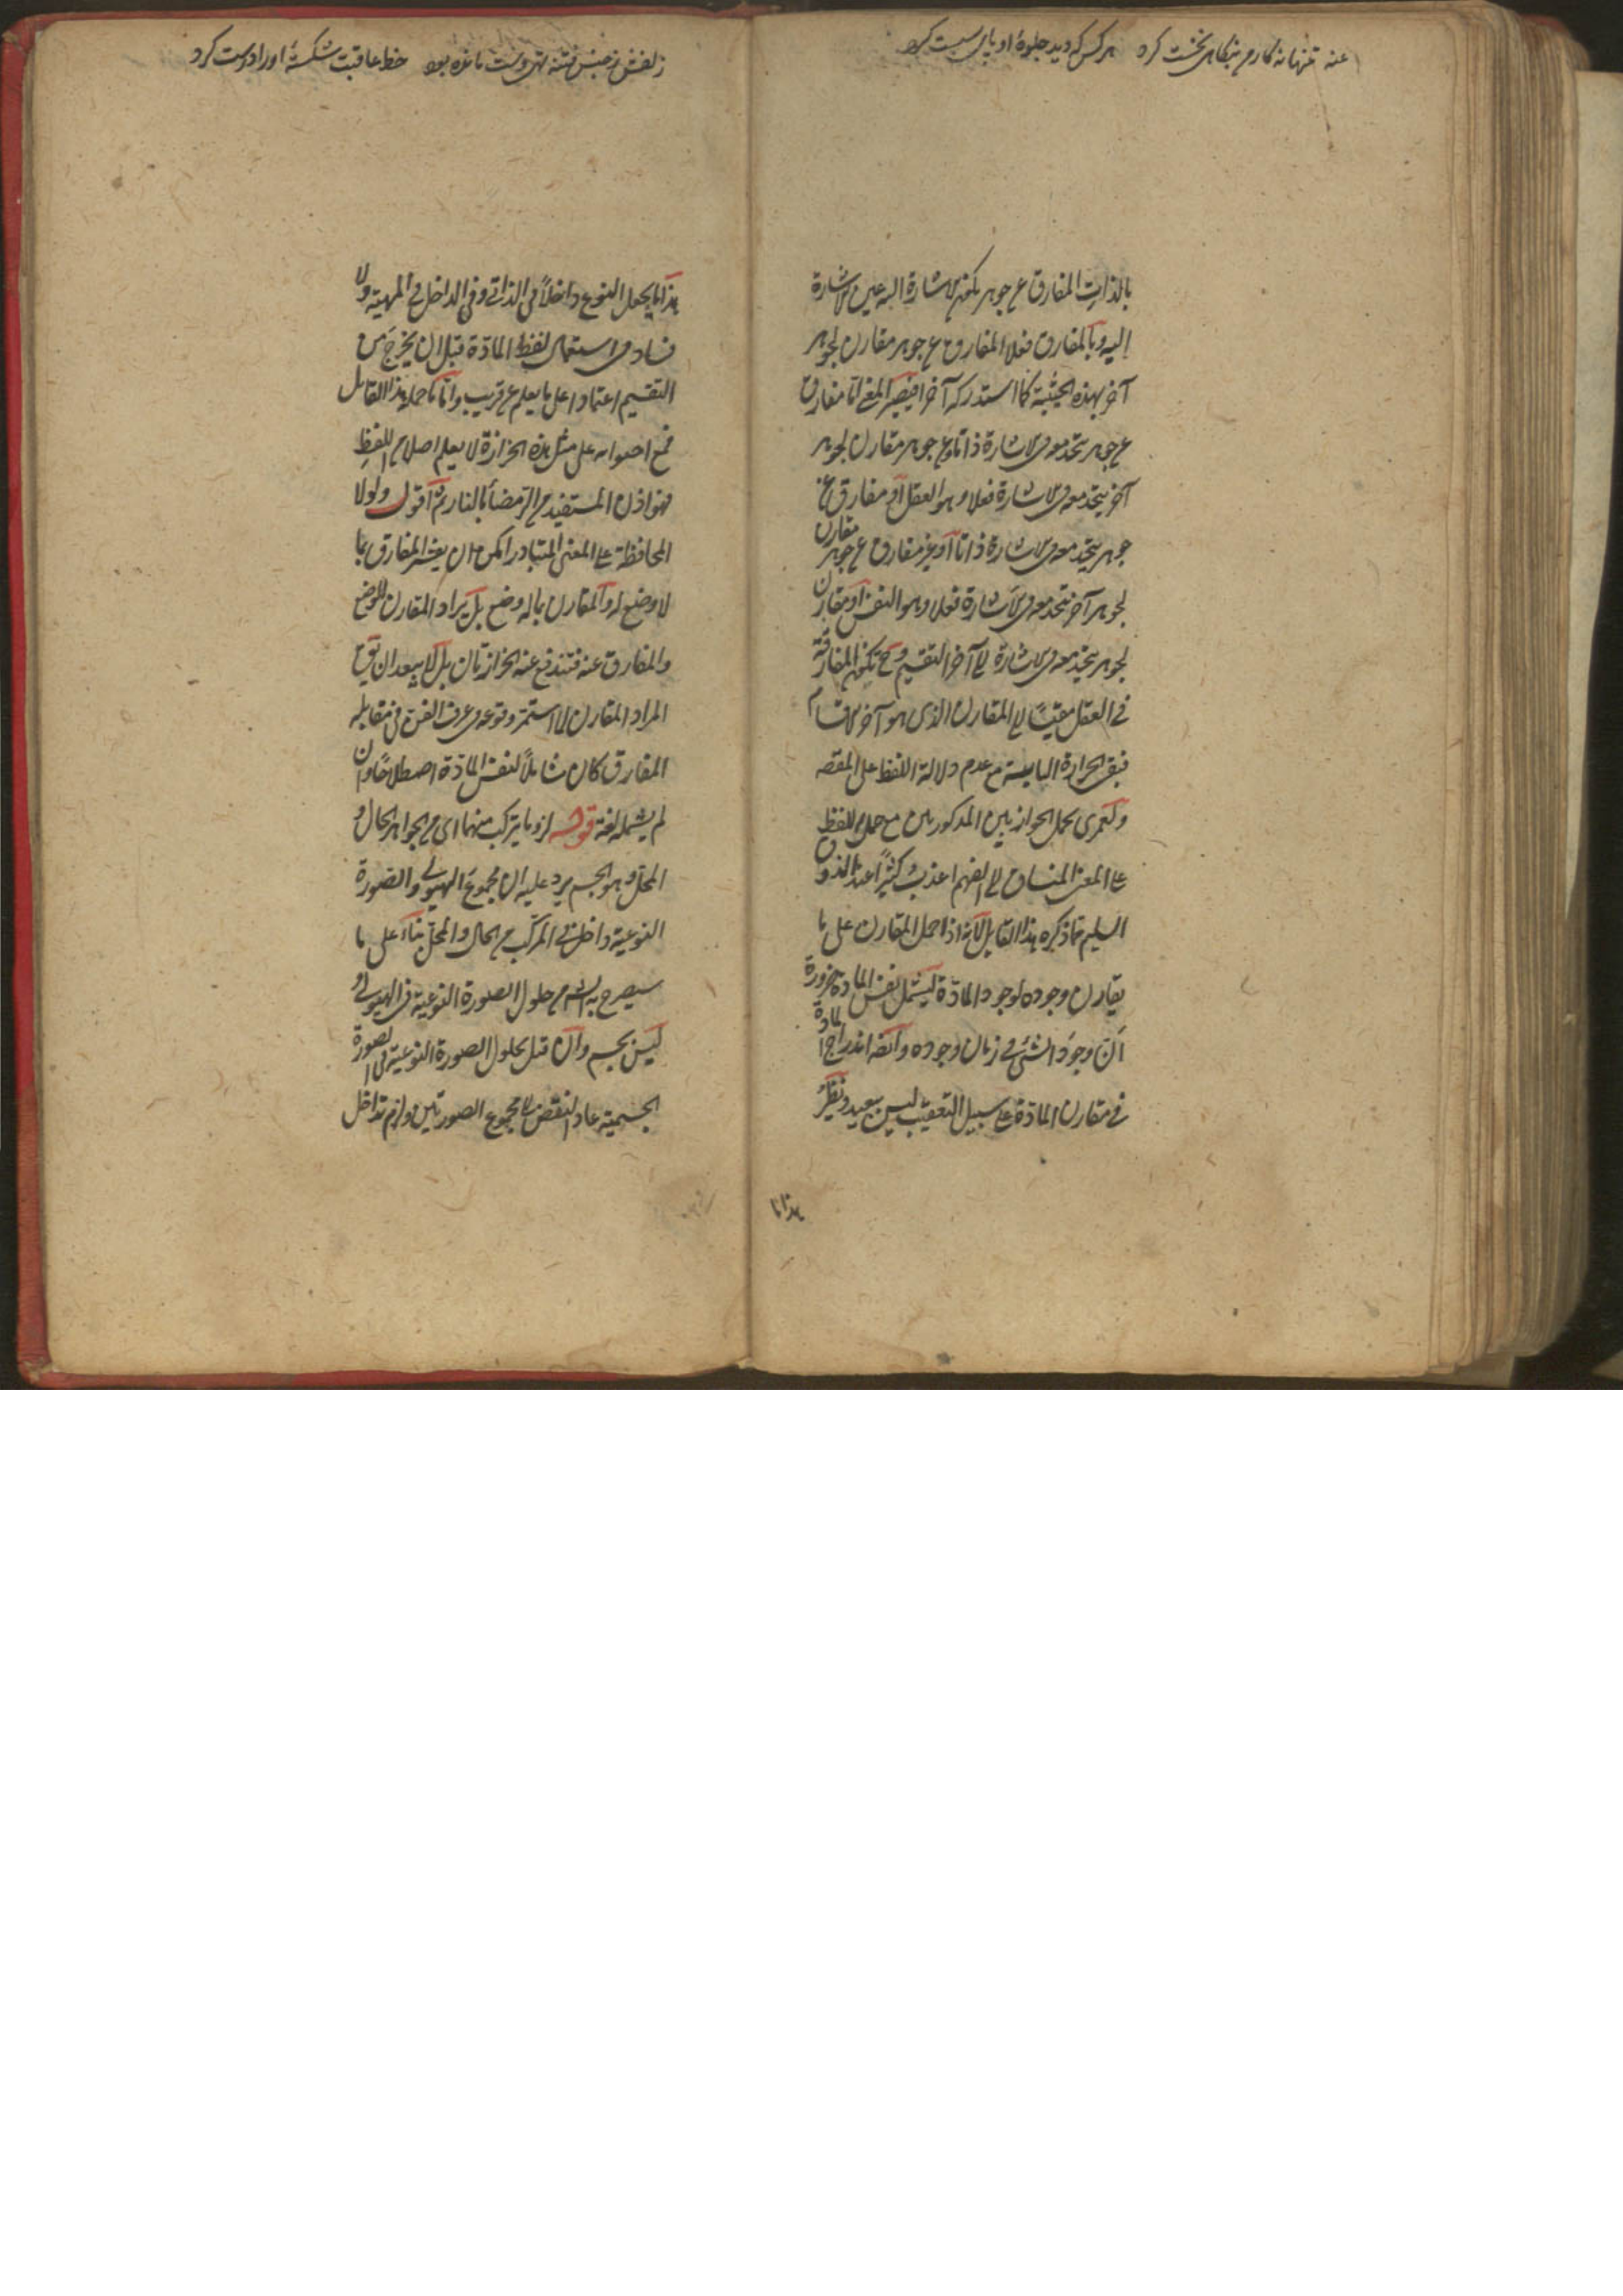 عنه تنها نه کارم بنگاهی نخست کرد هر کس که دید جلوهٔ او پای سست کرد
بالذات المفارق عن جوهر تكون الاشارة اليه عين الاشارة
اليه وبالمقارن فعلا المفارق عن جوهر مقارن لجوهر
آخر بهذه الحيثية كما استدركه آخرا فيصير المعنى اما مفارق
عن جوهر يتحد معه في الاشارة ذاتا وعن جوهر مقارن لجوهر
آخر يتحد معه في الاشارة فعلا وهو العقل او مفارق عن
جوهر يتحد معه في الاشارة ذاتا او غير مفارق عن جوهر مقارن
لجوهر آخر يتحد معه في الاشارة فعلا وهو النفس او مقارن
لجوهر يتحد معه في الاشارة الى آخر التقسيم وح تكون المفارقة
في العقل مقيسًا الى المقارن الذي هو آخر الاقسام
فبقى الحزازة السابعة مع عدم دلالة اللفظ على المقصد
ولعمري تحمل الحزازتين المذكورتين مع حمل اللفظ
على المعنى المنساق الى الفهم اعذب كثيرًا عند الذوق
السليم مما ذكره هذا القايل لانه اذا حمل المقارن على ما
يقارن وجوده لوجود المادة ليشمل نفس المادة ضرورة
ان وجود الشئ في زمان وجوده وايضا اندراج المادة
في مقارن المادة على سبيل التعقيب ليس ببعيد ونظير
هذا ما
زلفش ز جنس فتنه تهی دست مانده بود خط عاقبت شکستهٔ او را درست کرد
هذا ما يجعل النوع داخلاً في الذاتي وفي الداخل في المهية ولا
فساد في استعمال لفظ المادة قبل ان يخرج من
التقسيم اعتمادا على ما يعلم عن قريب واما ما حمله هذا القايل
فمع احتوائه على مثل هذه الحزازة لا يعلم اصلا من اللفظ
فهو اذن المستفيد من الرمضاء بالنار ثم اقول ولولا
المحافظة على المعنى المتبادر امكن ان يفسر المفارق بما
لا وضع له والمقارن بما له وضع بل يراد المقارن للوضع
والمفارق عنه فتندفع عنه الحزازتان بل لا يبعد ان يق
المراد المقارن لما استمر وقوعه في عرف الفن في مقابله
المفارق كان شاملاً لنفس المادة اصطلاحًا وان
لم يشمله لغة قوله او ما يتركب منهما اى من الجواهر الحال و
المحل وهو الجسم يرد عليه ان مجموع الهيولى والصورة
النوعية داخل في المركب من الحال والمحل بناء على ما
سيصرح به الشم من حلول الصورة النوعية في الهيولى و
ليس بجسم وان قيل بحلول الصورة النوعية في الصورة
الجسمية عاد النقض بمجموع الصورتين ولزم تداخل